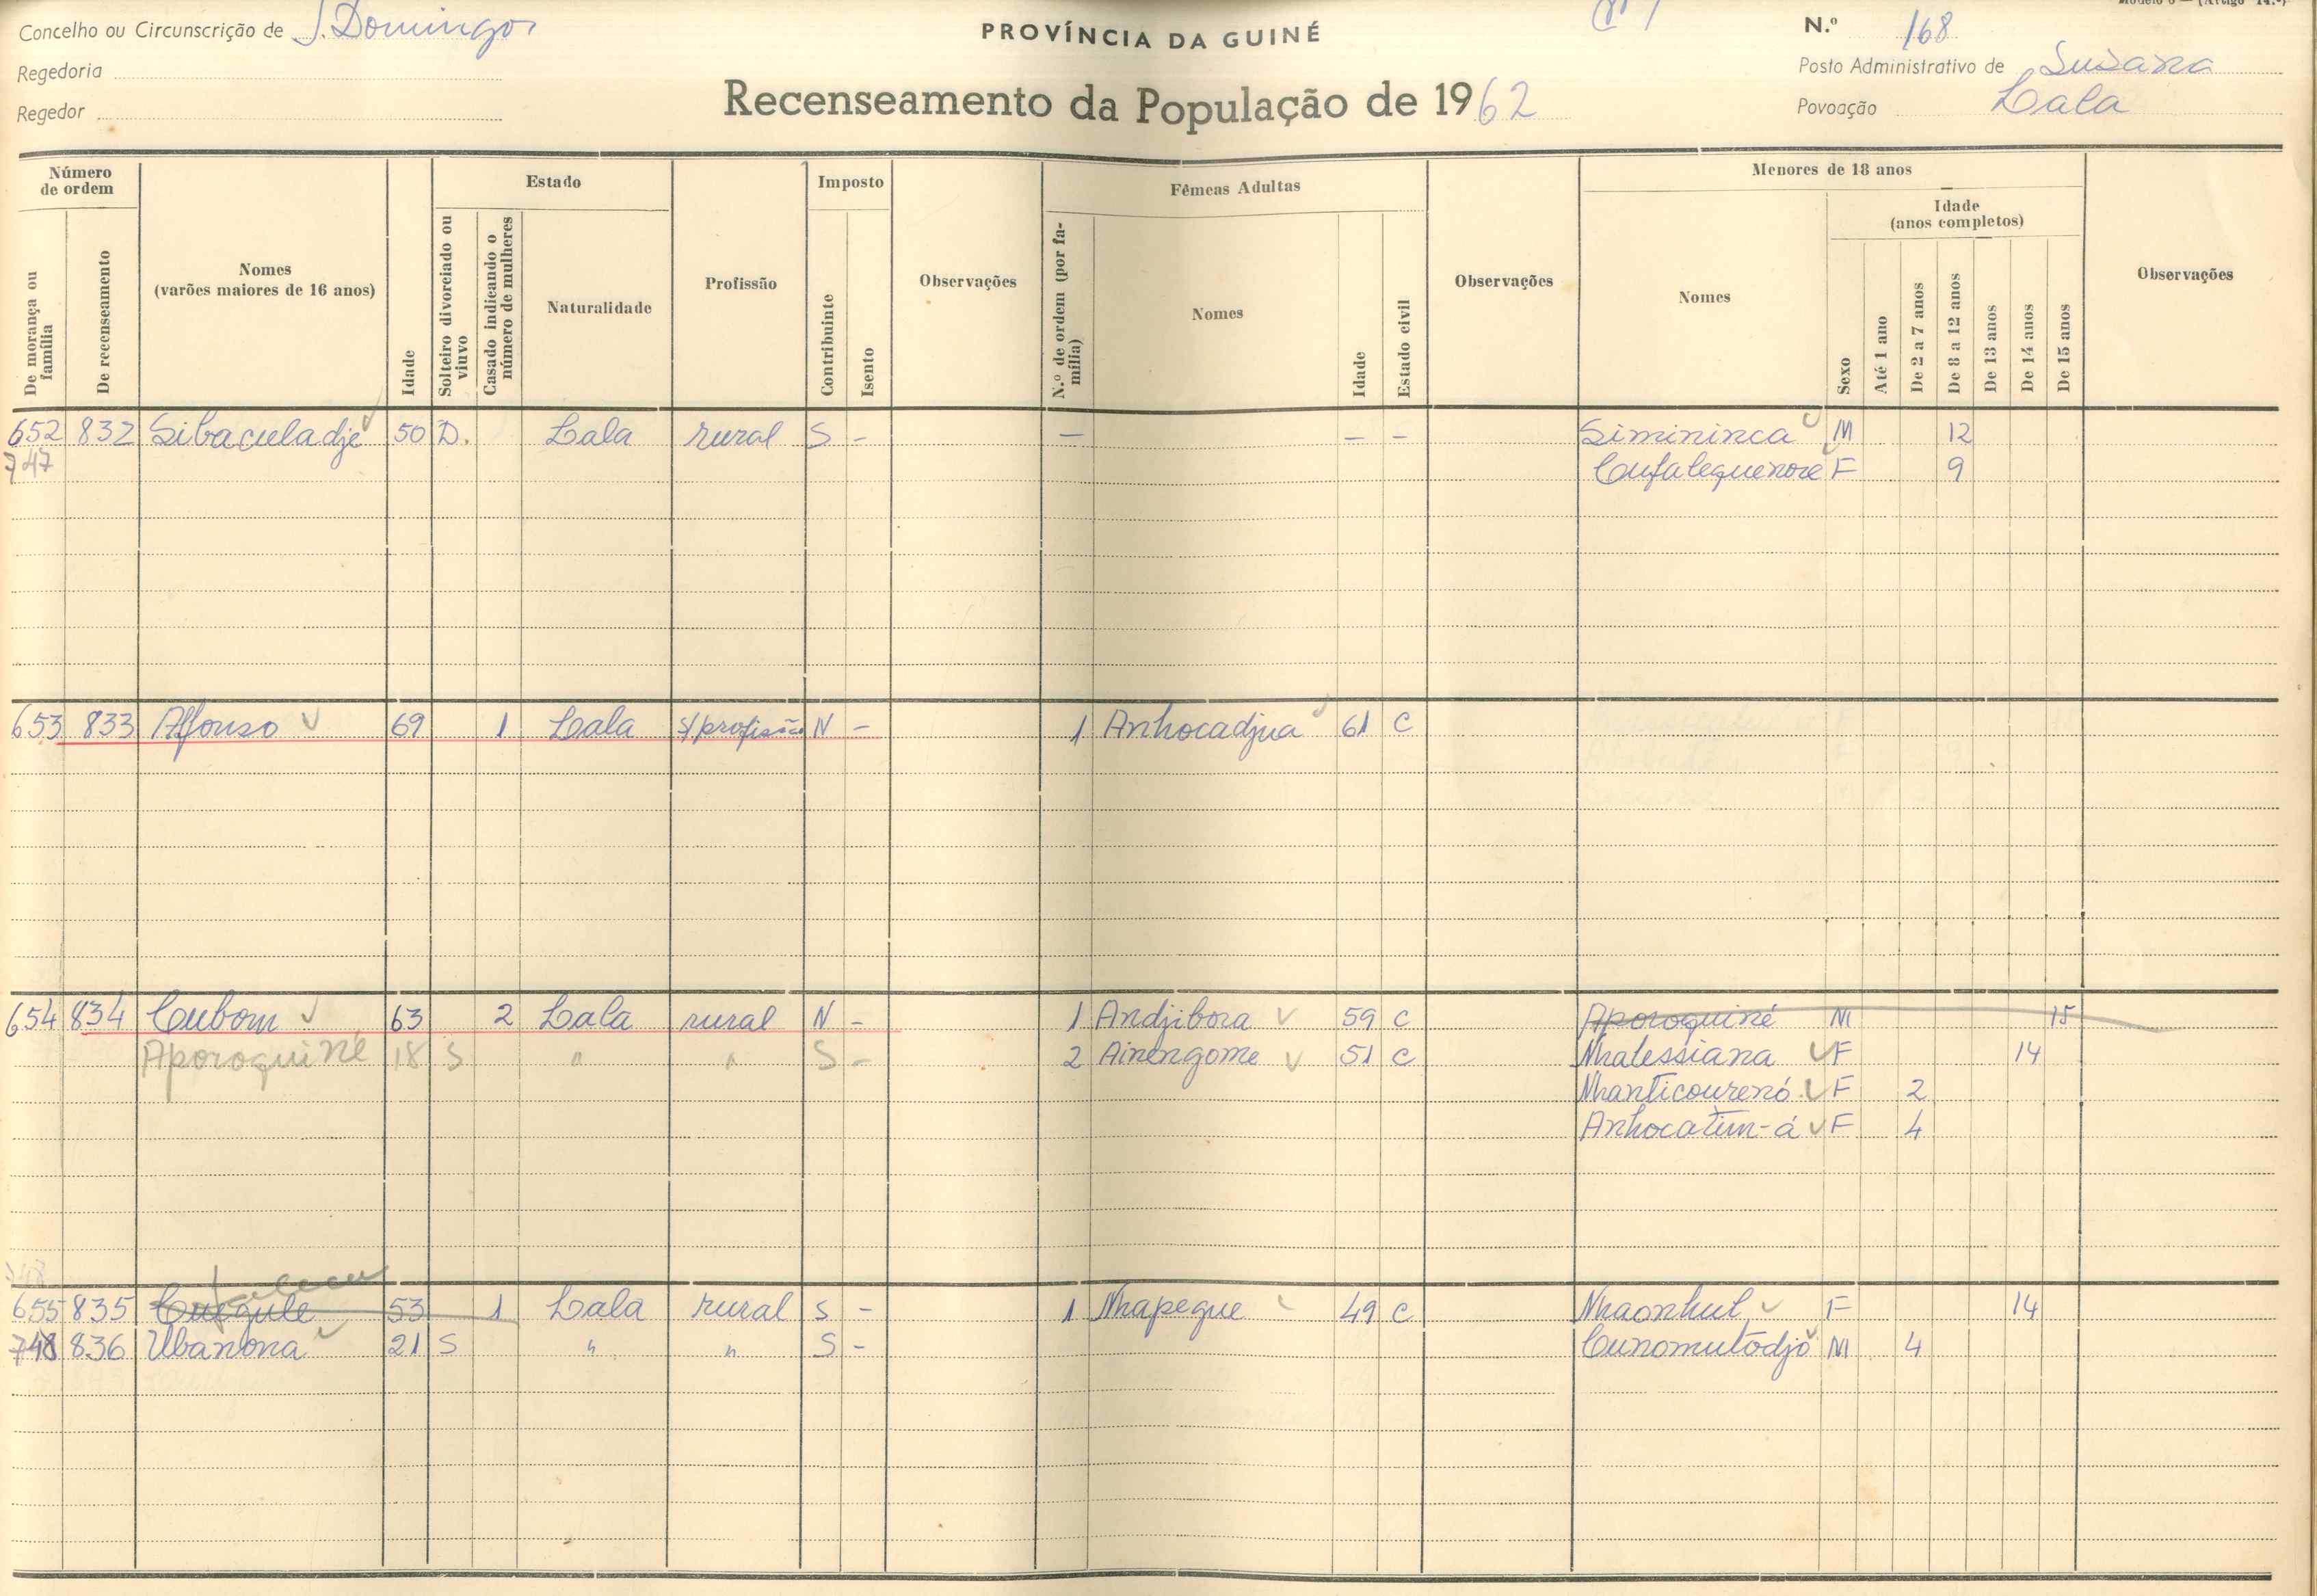 Modelo 6 — (Artigo 14.º)
Concelho ou Circunscrição de S. Domingos
PROVÍNCIA DA GUINÉ
N.º 168
Regedoria
Posto Administrativo de Susana
Regedor
Recenseamento da População de 1962
Povoação Lala
Número de ordem
Estado
Imposto
Fêmeas Adultas
Menores de 18 anos
Idade (anos completos)
De morança ou família
De recenseamento
Nomes (varões maiores de 16 anos)
Idade
Solteiro divorciado ou viuvo
Casado indicando o número de mulheres
Naturalidade
Profissão
Contribuinte
Isento
Observações
N.º de ordem (por família)
Nomes
Idade
Estado civil
Observações
Nomes
Sexo
Até 1 ano
De 2 a 7 anos
De 8 a 12 anos
De 13 anos
De 14 anos
De 15 anos
Observações
652 832 Sibaculadjé 50 D. Lala rural S - — — - Simininca M 12
747 Cufalequenore F 9
653 833 Afonso 69 1 Lala s/profissão N - 1 Anhocadjua 61 C
654 834 Cubom 63 2 Lala rural N - 1 Andjibora 59 C Aporoquiné M 15
Aporoquiné 18 S " " S - 2 Ainengome 51 C Nhalessiana F 14
Nhanticourenó F 2
Anhocatim-á F 4
faleceu
655 835 Cuegule 53 1 Lala rural S - 1 Nhapegue 49 C Nhaonhul F 14
748 836 Ubanona 21 S " " S - Cunomutodjó M 4